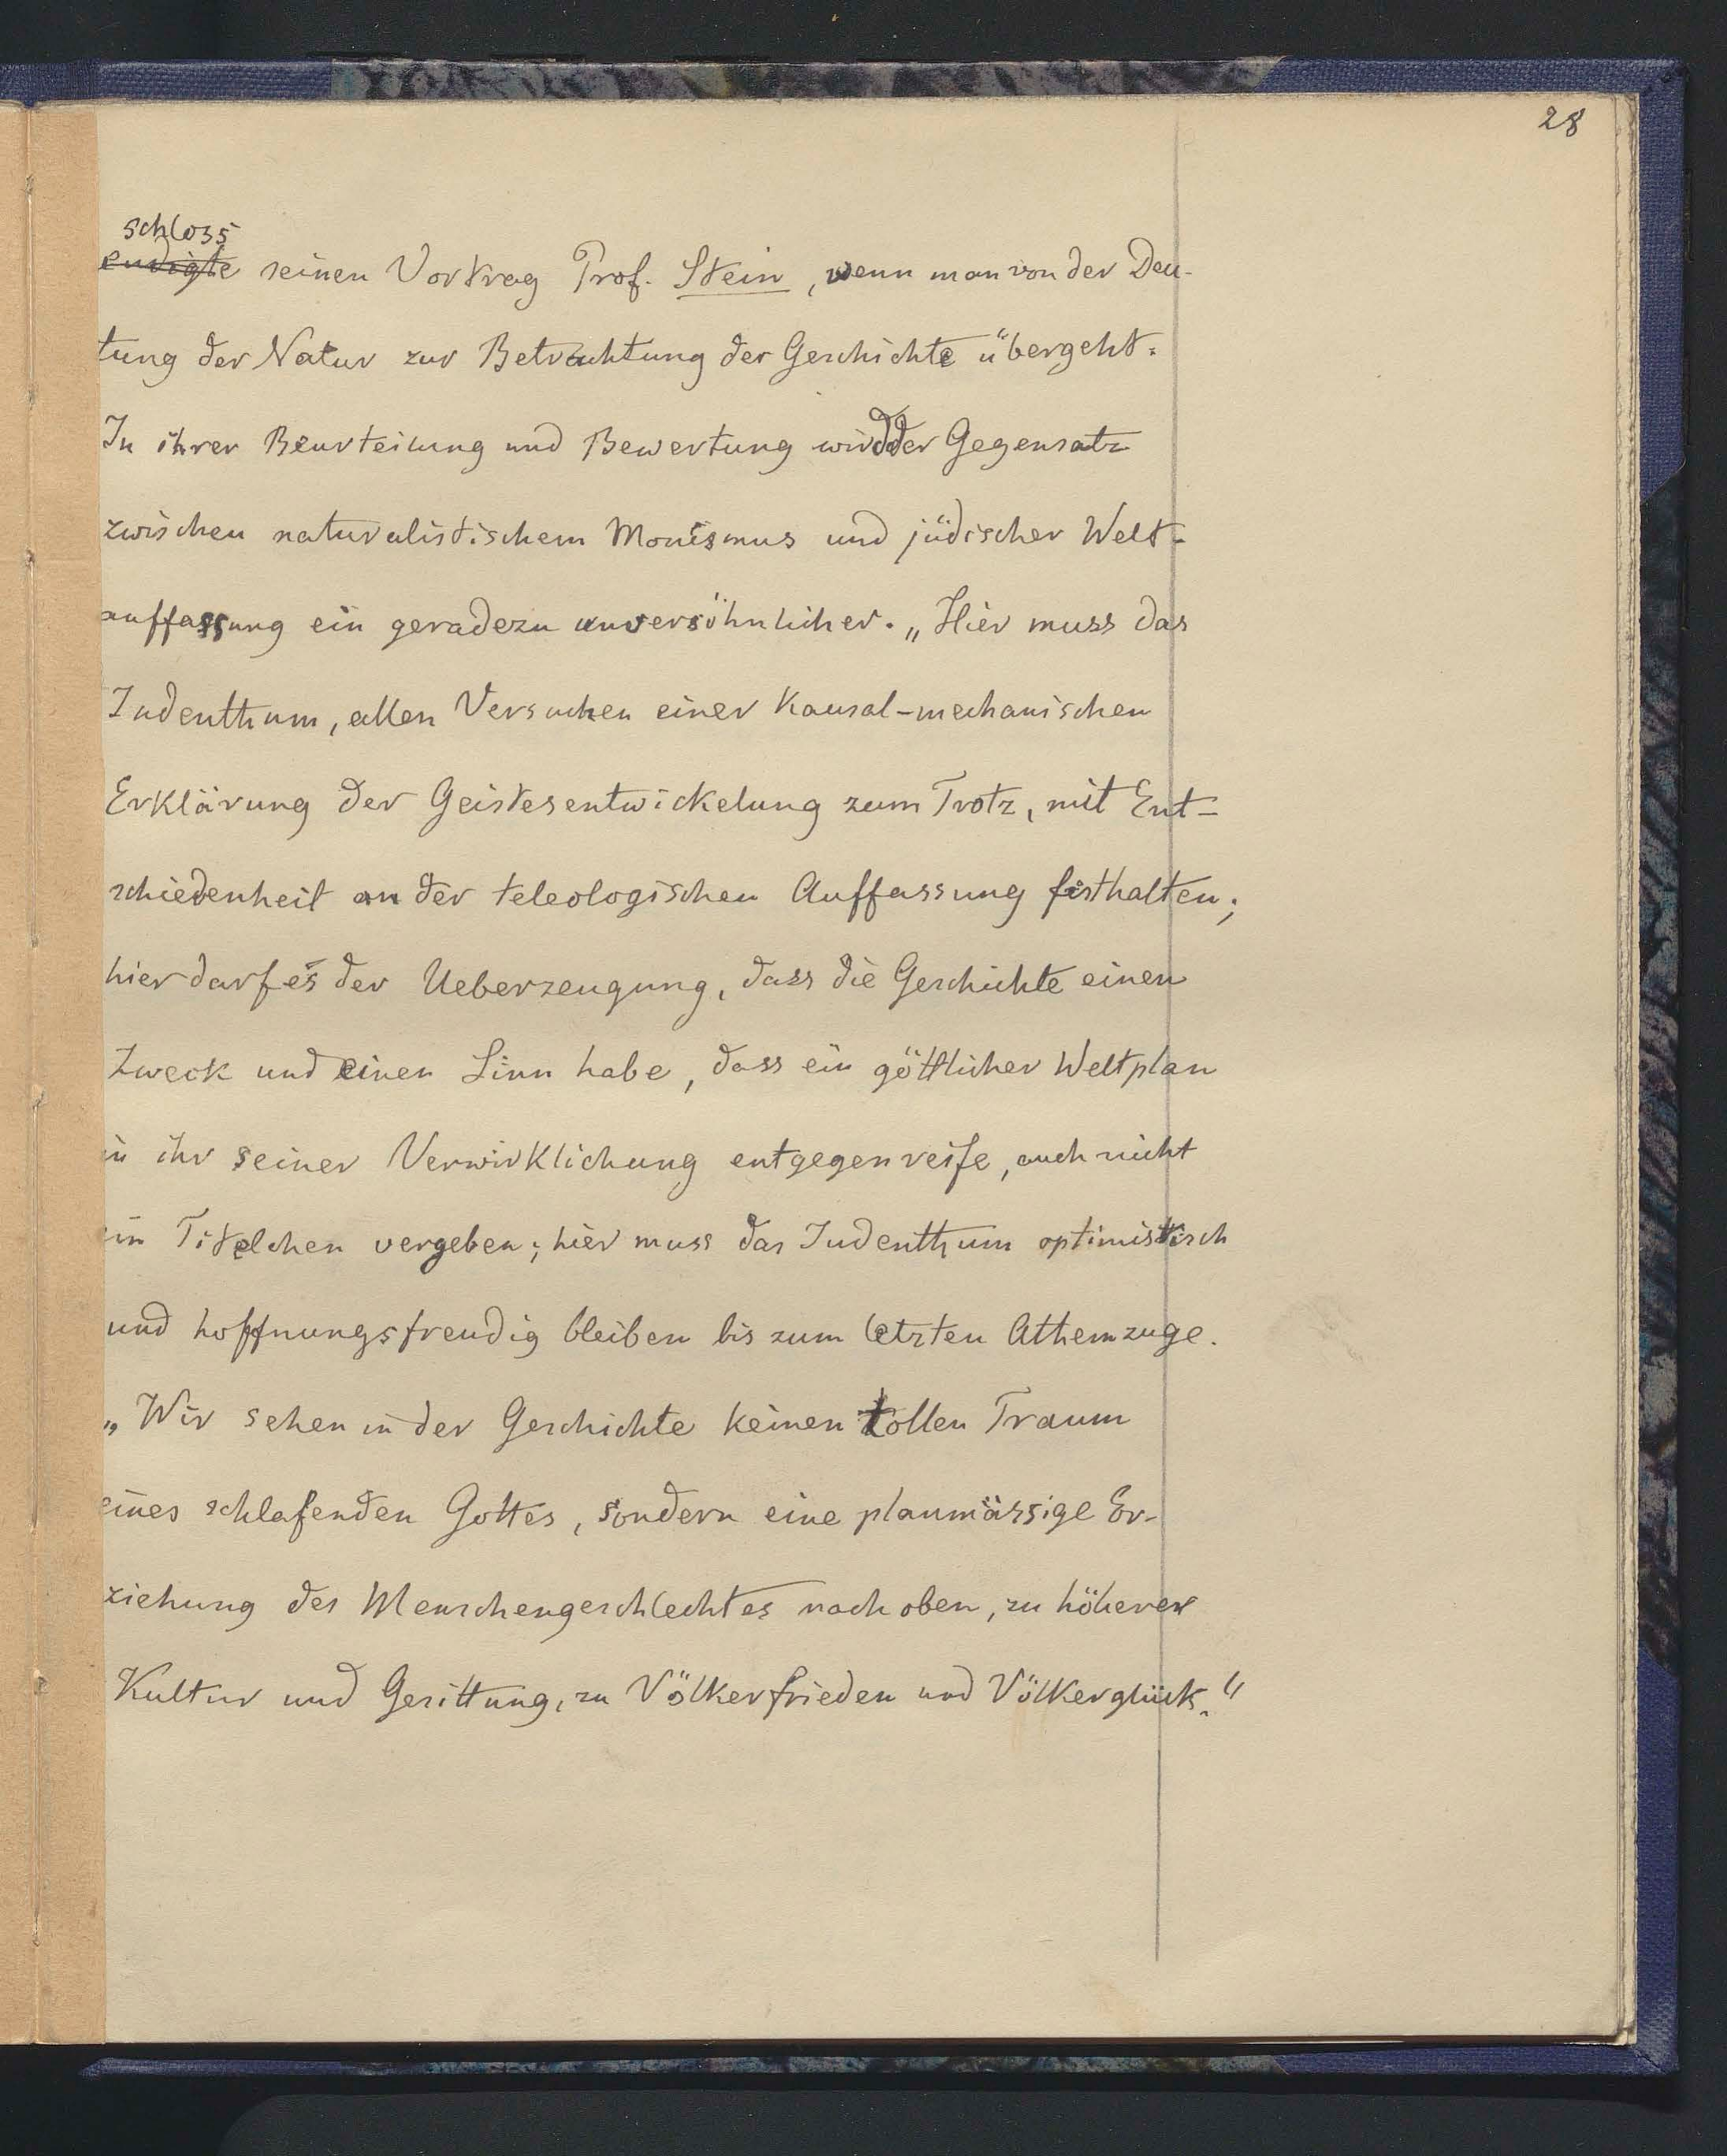 28
schloss
endigte seinen Vortrag Prof. Stein, wenn man von der Deu-
tung der Natur zur Betrachtung der Geschichte übergeht.
In ihrer Beurteilung und Bewertung wird der Gegensatz
zwischen naturalistischem Monismus und jüdischer Welt-
auffassung ein geradezu unversöhnlicher. „Hier muss das
Judenthum, allen Versuchen einer Kausal-mechanischen
Erklärung der Geistesentwickelung zum Trotz, mit Ent-
schiedenheit an der teleologischen Auffassung festhalten;
hier darf es der Ueberzeugung, dass die Geschichte einen
Zweck und einen Sinn habe, dass ein göttlicher Weltplan
in ihr seiner Verwirklichung entgegenreife, auch nicht
ein Titelchen vergeben; hier muss das Judenthum optimistisch
und hoffnungsfreudig bleiben bis zum letzten Athemzuge.
„Wir sehen in der Geschichte keinen tollen Traum
eines schlafenden Gottes, sondern eine planmässige Er-
ziehung des Menschengeschlechtes nach oben, zu höherer
Kultur und Gesittung, zu Völkerfrieden und Völkerglück."